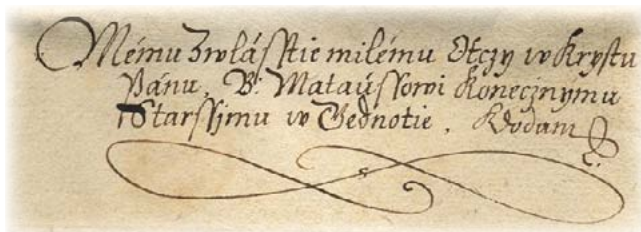 Mému Zwlásstie milému Otczy w Krystu
Pánu, B: Mataússowi Konecznymu
Starssjmu w Gednotie. Kdodani